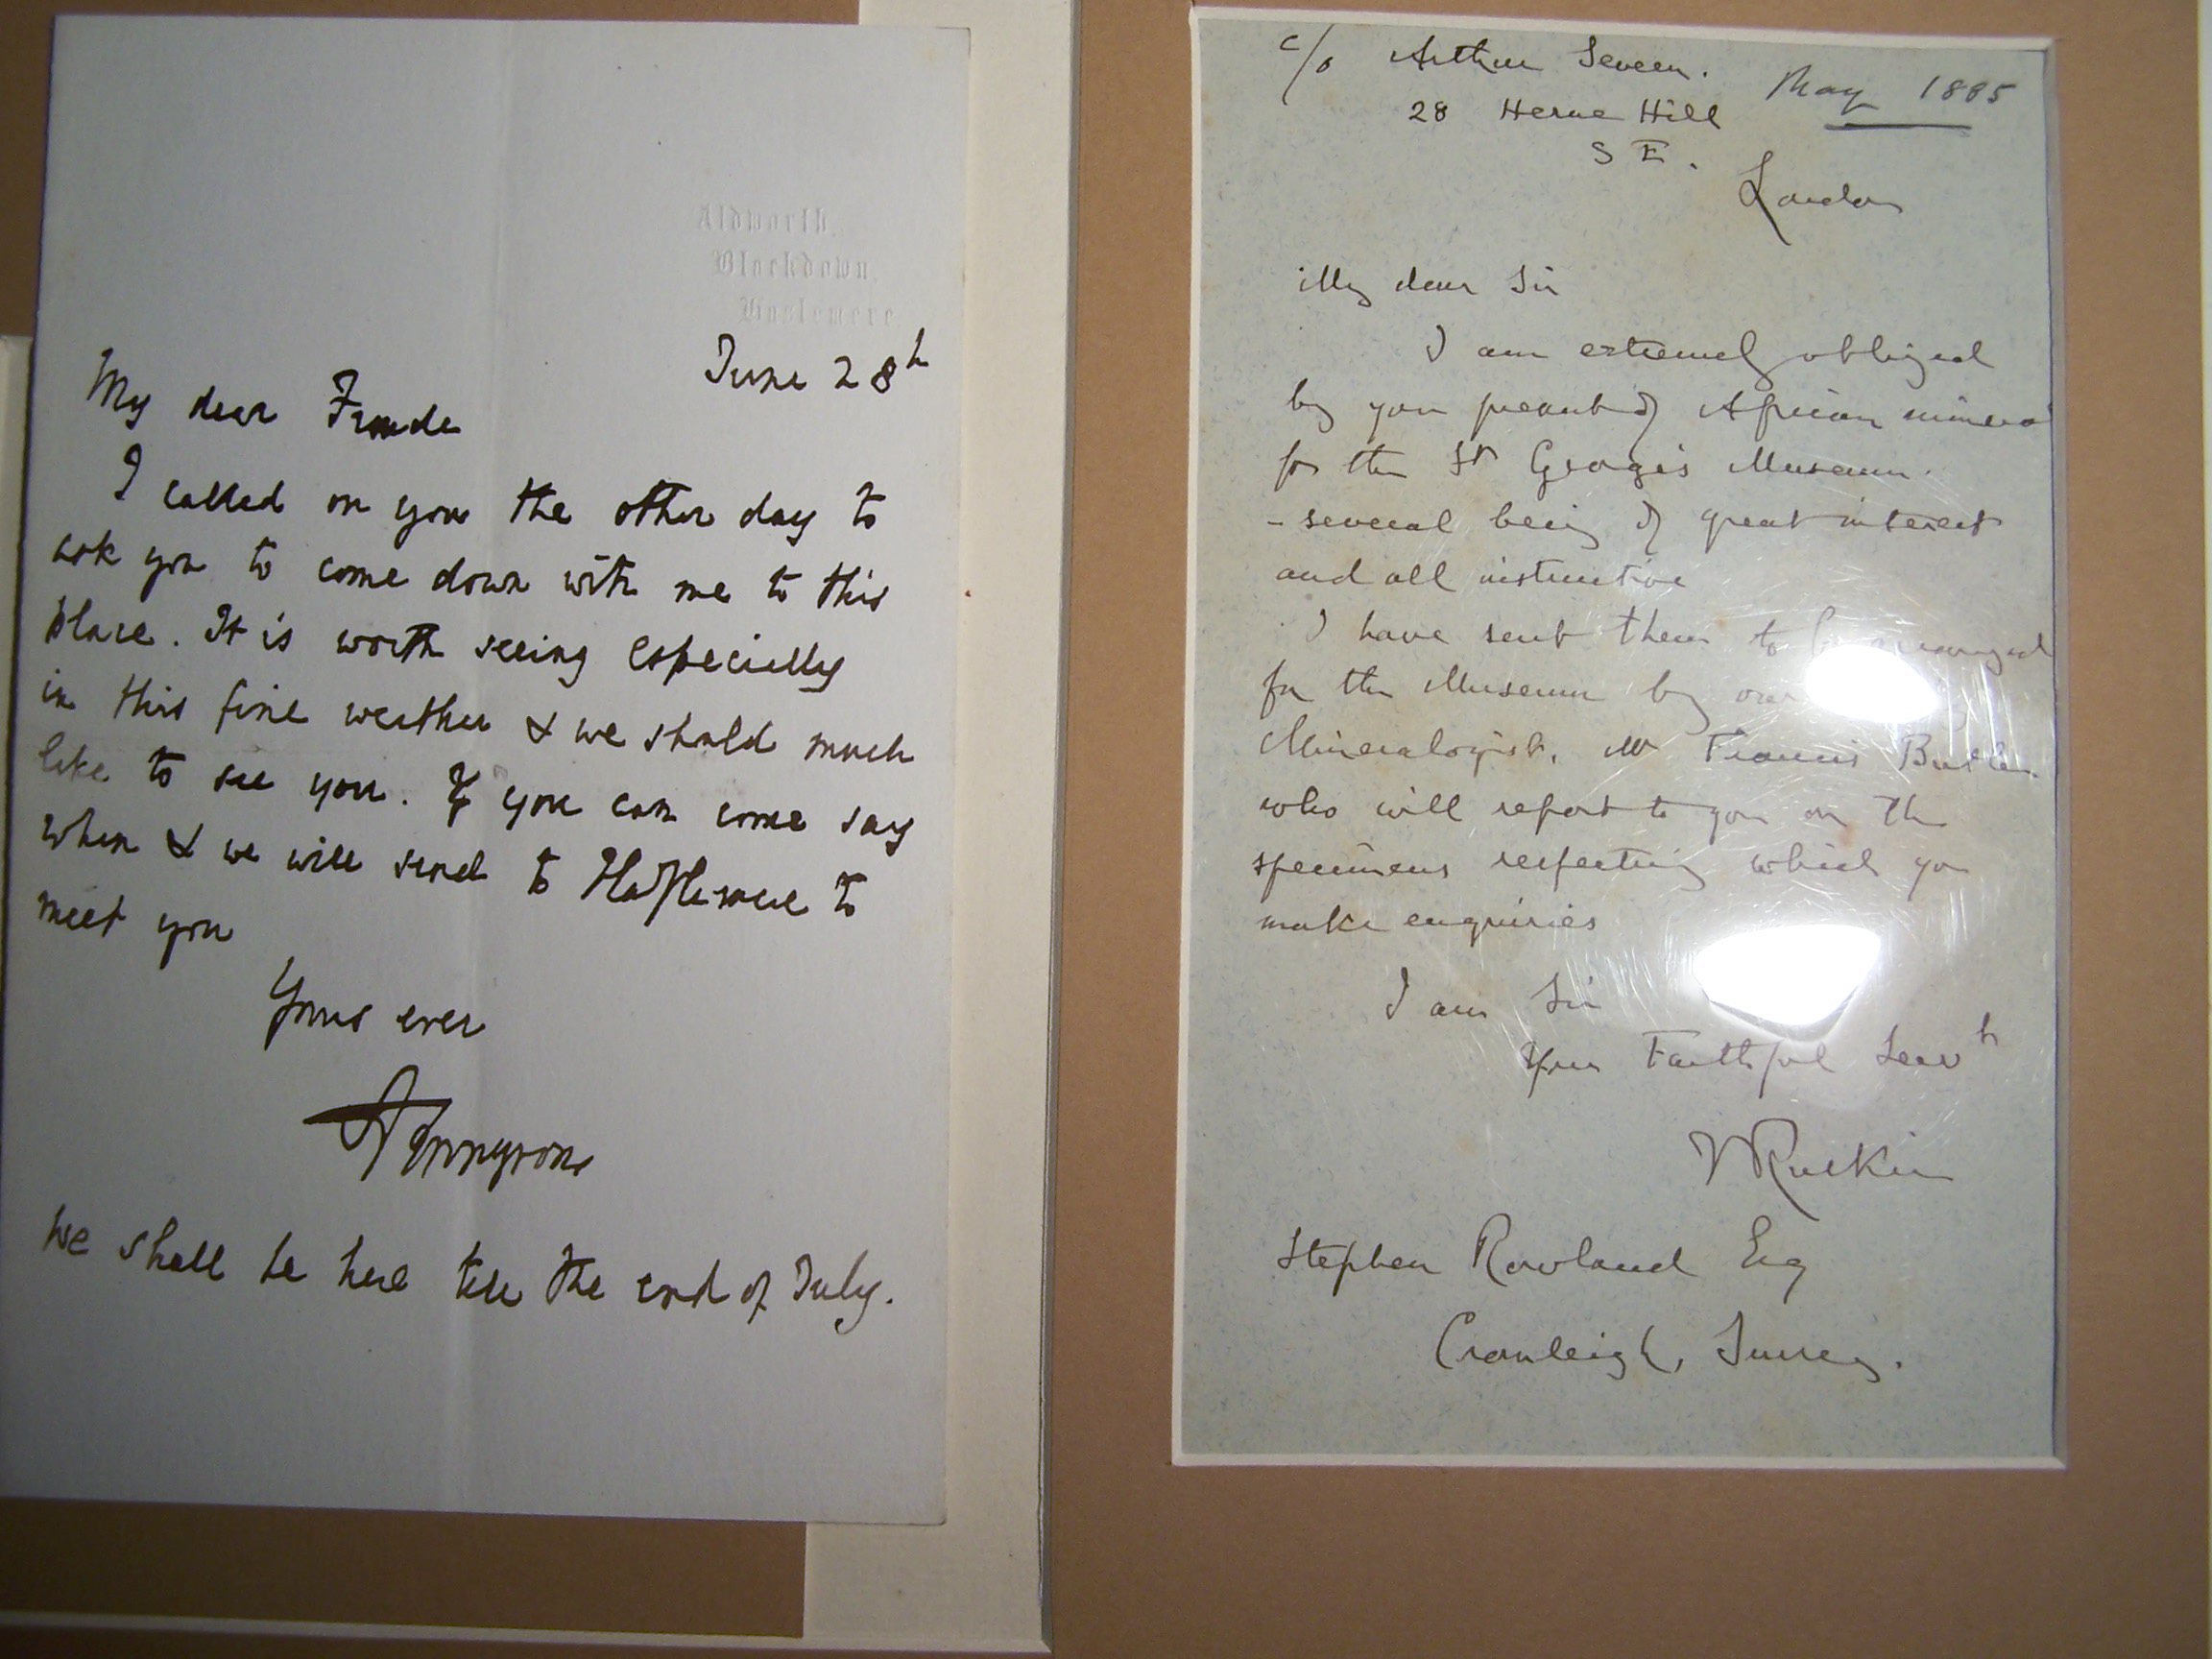 Aldworth,
Blackdown,
Haslemere
June 28th
My dear Froude
I called on you the other day to
ask you to come down with me to this
place. It is worth seeing especially
in this fine weather & we should much
like to see you. If you can come say
when & we will send to Haslemere to
meet you
Yours ever
A Tennyson
We shall be here till the end of July.
c/o Arthur Severn.
28 Herne Hill
S E.
May 1885
London
My dear Sir
I am extremely obliged
by your present of African mineral
for the St George's Museum.
- several being of great interest
and all instructive
I have sent them to be arranged
for the Museum by our
Mineralogist, Mr Francis Butler.
who will report to you on the
specimens respecting which you
make enquiries
I am Sir
Your Faithful Servt
J Ruskin
Stephen Rowland Esq
Cranleigh, Surrey.